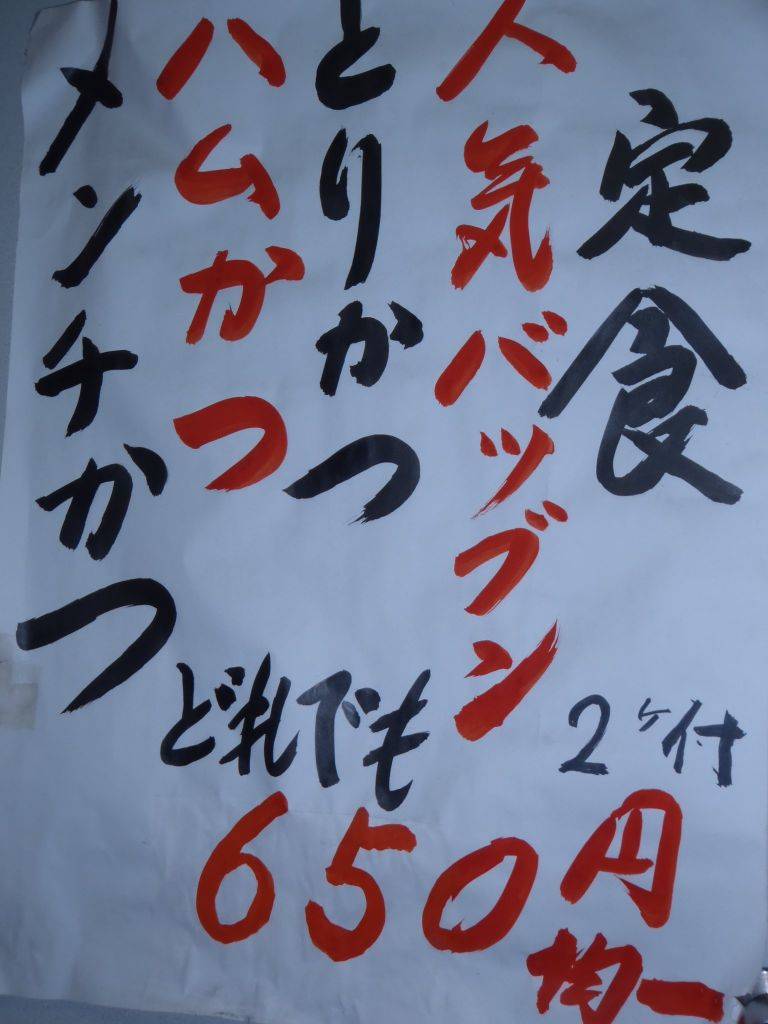 定食
人気バツグン
とりかつ
ハムかつ
メンチかつ
2ヶ付
どれでも
650円
均一